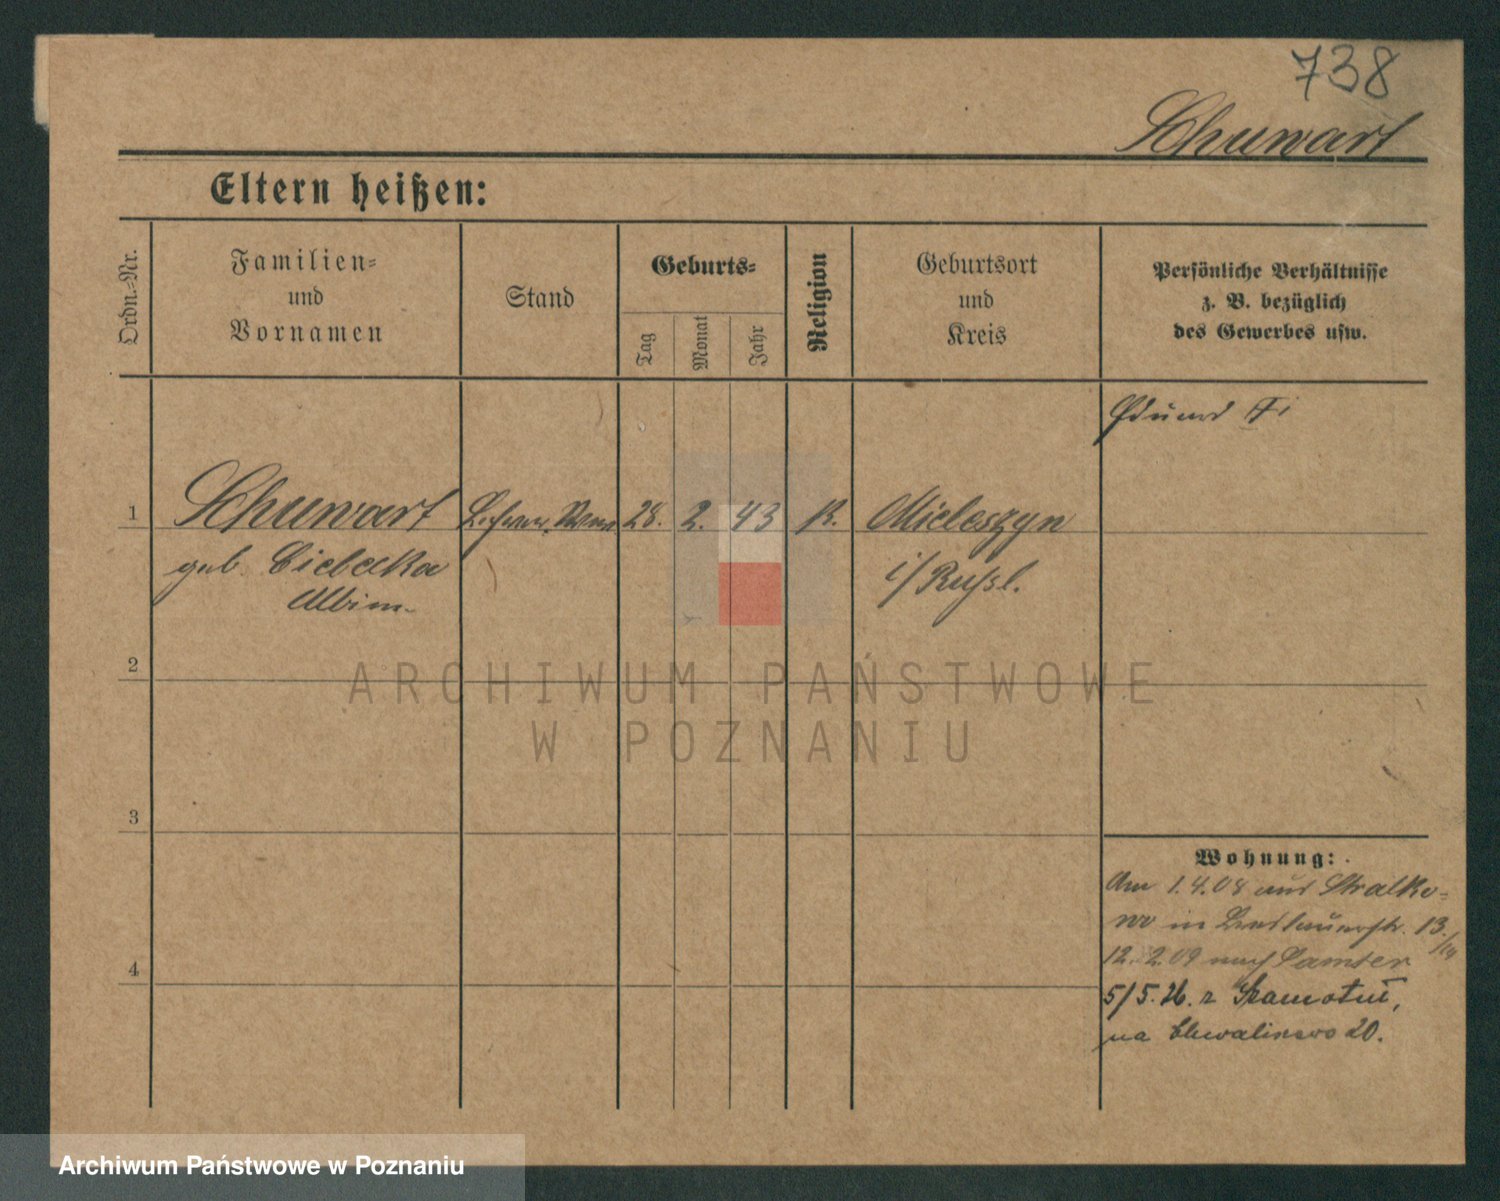 738
Schuwart
Eltern heißen:
Ordn.-Nr.
Familien-
und
Vornamen
Stand
Geburts-
Tag
Monat
Jahr
Religion
Geburtsort
und
Kreis
Persönliche Verhältnisse
z. B. bezüglich
des Gewerbes usw.
1 Schuwart 28. 2. 43 K. Mieleszyn
geb. Ciebecka i/Russl.
Albin.
2
3
4
Wohnung:
Am 1.4.08 aus Stralko-
wo in 13.
12. 2. 09 nach Samter
5/5. 26. z Szamotuł,
na Chwaliszewo 20.
ARCHIWUM PAŃSTWOWE
W POZNANIU
Archiwum Państwowe w Poznaniu